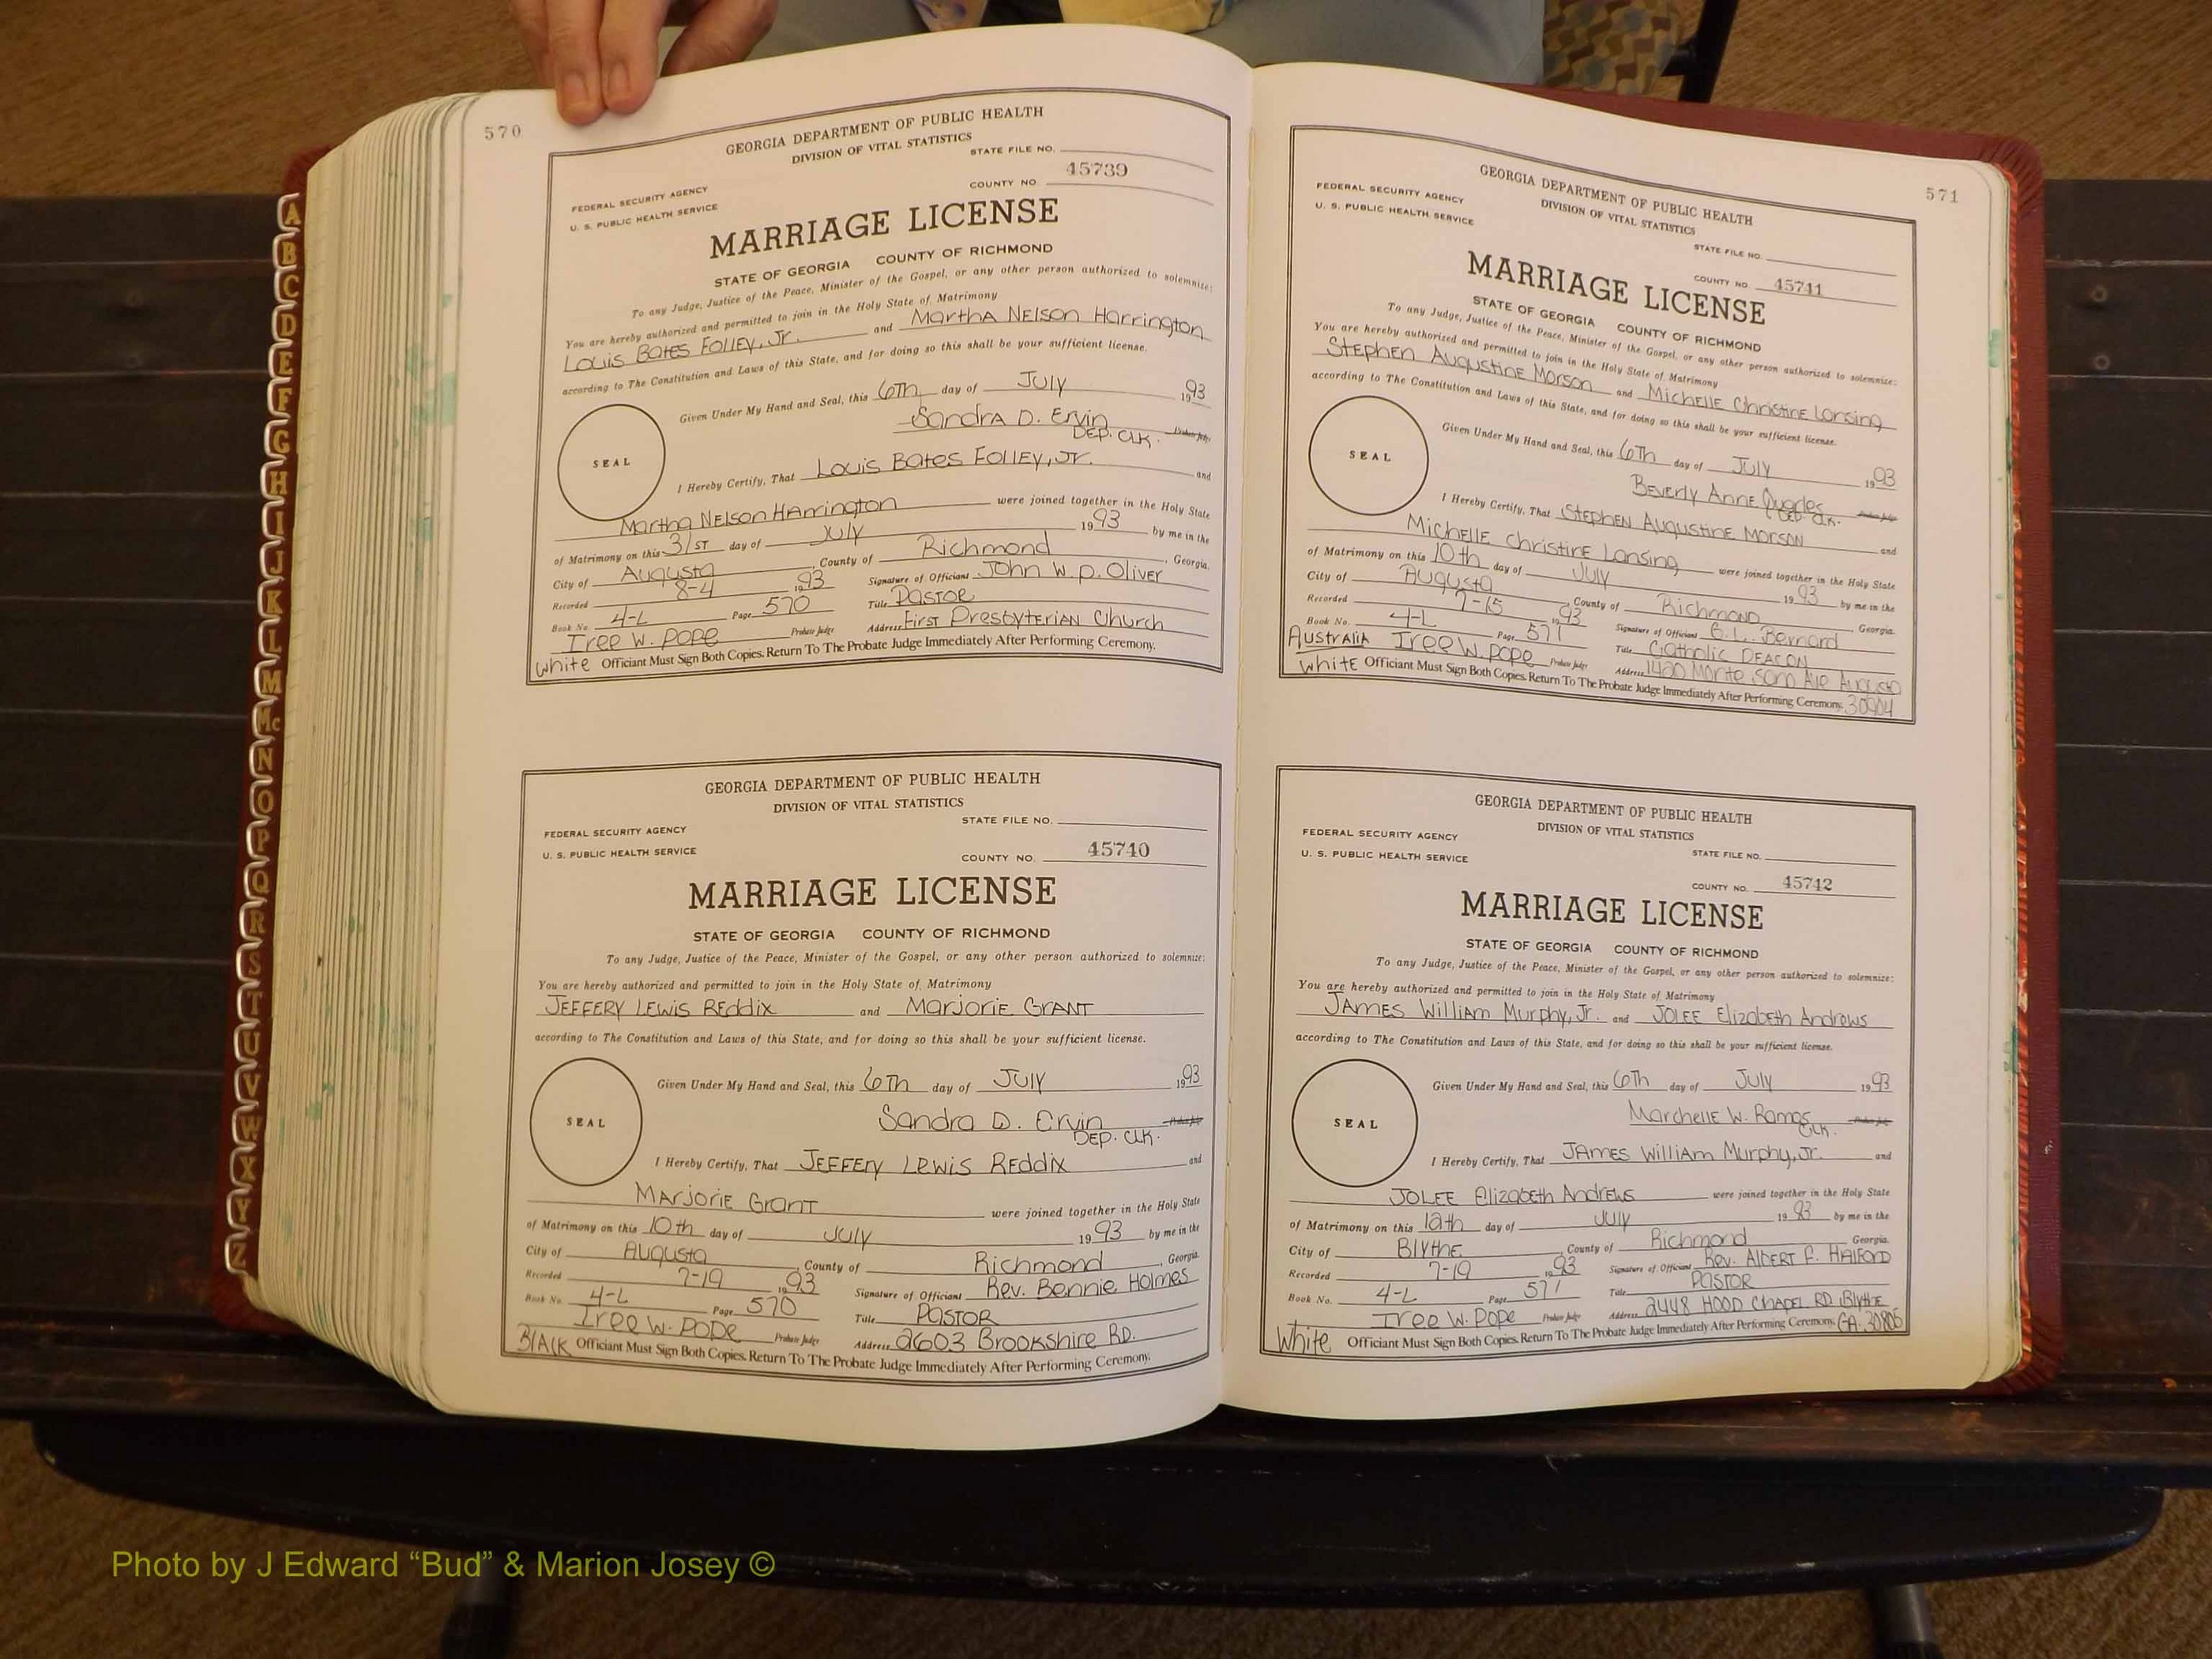 570
GEORGIA DEPARTMENT OF PUBLIC HEALTH
DIVISION OF VITAL STATISTICS
STATE FILE NO.
FEDERAL SECURITY AGENCY
U. S. PUBLIC HEALTH SERVICE
COUNTY NO. 45739
MARRIAGE LICENSE
STATE OF GEORGIA COUNTY OF RICHMOND
To any Judge, Justice of the Peace, Minister of the Gospel, or any other person authorized to solemnize:
You are hereby authorized and permitted to join in the Holy State of Matrimony
Louis Bates Folley, Jr. and Martha Nelson Harrington
according to The Constitution and Laws of this State, and for doing so this shall be your sufficient license.
Given Under My Hand and Seal, this 6th day of July 1993
Sandra D. Ervin Probate Judge
DEP. CLK.
SEAL
I Hereby Certify, That Louis Bates Folley, Jr. and
Martha Nelson Harrington were joined together in the Holy State
of Matrimony on this 31st day of July 1993 by me in the
City of Augusta, County of Richmond, Georgia.
Recorded 8-4 1993 Signature of Officiant John W. P. Oliver
Book No. 4-L Page 570 Title Pastor
Iree W. Pope Probate Judge Address First Presbyterian Church
White Officiant Must Sign Both Copies. Return To The Probate Judge Immediately After Performing Ceremony.
GEORGIA DEPARTMENT OF PUBLIC HEALTH
DIVISION OF VITAL STATISTICS
STATE FILE NO.
FEDERAL SECURITY AGENCY
U. S. PUBLIC HEALTH SERVICE
COUNTY NO. 45740
MARRIAGE LICENSE
STATE OF GEORGIA COUNTY OF RICHMOND
To any Judge, Justice of the Peace, Minister of the Gospel, or any other person authorized to solemnize:
You are hereby authorized and permitted to join in the Holy State of Matrimony
Jeffery Lewis Reddix and Marjorie Grant
according to The Constitution and Laws of this State, and for doing so this shall be your sufficient license.
Given Under My Hand and Seal, this 6th day of July 1993
Sandra D. Ervin Probate Judge
DEP. CLK.
SEAL
I Hereby Certify, That Jeffery Lewis Reddix and
Marjorie Grant were joined together in the Holy State
of Matrimony on this 10th day of July 1993 by me in the
City of Augusta, County of Richmond, Georgia.
Recorded 7-19 1993 Signature of Officiant Rev. Bennie Holmes
Book No. 4-L Page 570 Title Pastor
Iree W. Pope Probate Judge Address 2603 Brookshire RD.
Black Officiant Must Sign Both Copies. Return To The Probate Judge Immediately After Performing Ceremony.
571
GEORGIA DEPARTMENT OF PUBLIC HEALTH
DIVISION OF VITAL STATISTICS
FEDERAL SECURITY AGENCY
U. S. PUBLIC HEALTH SERVICE
STATE FILE NO.
COUNTY NO. 45741
MARRIAGE LICENSE
STATE OF GEORGIA COUNTY OF RICHMOND
To any Judge, Justice of the Peace, Minister of the Gospel, or any other person authorized to solemnize:
You are hereby authorized and permitted to join in the Holy State of Matrimony
Stephen Augustine Morson and Michelle Christine Lansing
according to The Constitution and Laws of this State, and for doing so this shall be your sufficient license.
Given Under My Hand and Seal, this 6th day of July 1993
Beverly Anne Quarles Probate Judge
DEP. CLK.
SEAL
I Hereby Certify, That Stephen Augustine Morson and
Michelle Christine Lansing were joined together in the Holy State
of Matrimony on this 10th day of July 1993 by me in the
City of Augusta, County of Richmond Georgia.
Recorded 7-15 1993 Signature of Officiant G. L. Bernard
Book No. 4-L Page 571 Title Catholic Deacon
Australia Iree W. Pope Probate Judge Address 1420 Monte Sano Ave Augusta
White Officiant Must Sign Both Copies. Return To The Probate Judge Immediately After Performing Ceremony. 30904
GEORGIA DEPARTMENT OF PUBLIC HEALTH
DIVISION OF VITAL STATISTICS
FEDERAL SECURITY AGENCY
U. S. PUBLIC HEALTH SERVICE
STATE FILE NO.
COUNTY NO. 45742
MARRIAGE LICENSE
STATE OF GEORGIA COUNTY OF RICHMOND
To any Judge, Justice of the Peace, Minister of the Gospel, or any other person authorized to solemnize:
You are hereby authorized and permitted to join in the Holy State of Matrimony
James William Murphy, Jr. and Jolee Elizabeth Andrews
according to The Constitution and Laws of this State, and for doing so this shall be your sufficient license.
Given Under My Hand and Seal, this 6th day of July 1993
Marchelle W. Ramos Probate Judge
CLK.
SEAL
I Hereby Certify, That James William Murphy, Jr. and
Jolee Elizabeth Andrews were joined together in the Holy State
of Matrimony on this 12th day of July 1993 by me in the
City of Blythe, County of Richmond Georgia.
Recorded 7-19 1993 Signature of Officiant Rev. Albert F. Halford
Book No. 4-L Page 571 Title Pastor
Iree W. Pope Probate Judge Address 2448 Hood Chapel RD Blythe
White Officiant Must Sign Both Copies. Return To The Probate Judge Immediately After Performing Ceremony. GA. 30805
A
B
C
D
E
F
G
H
I
J
K
L
M
Mc
N
O
P
Q
R
S
T
U
V
W
X
Y
Z
Photo by J Edward “Bud” & Marion Josey ©